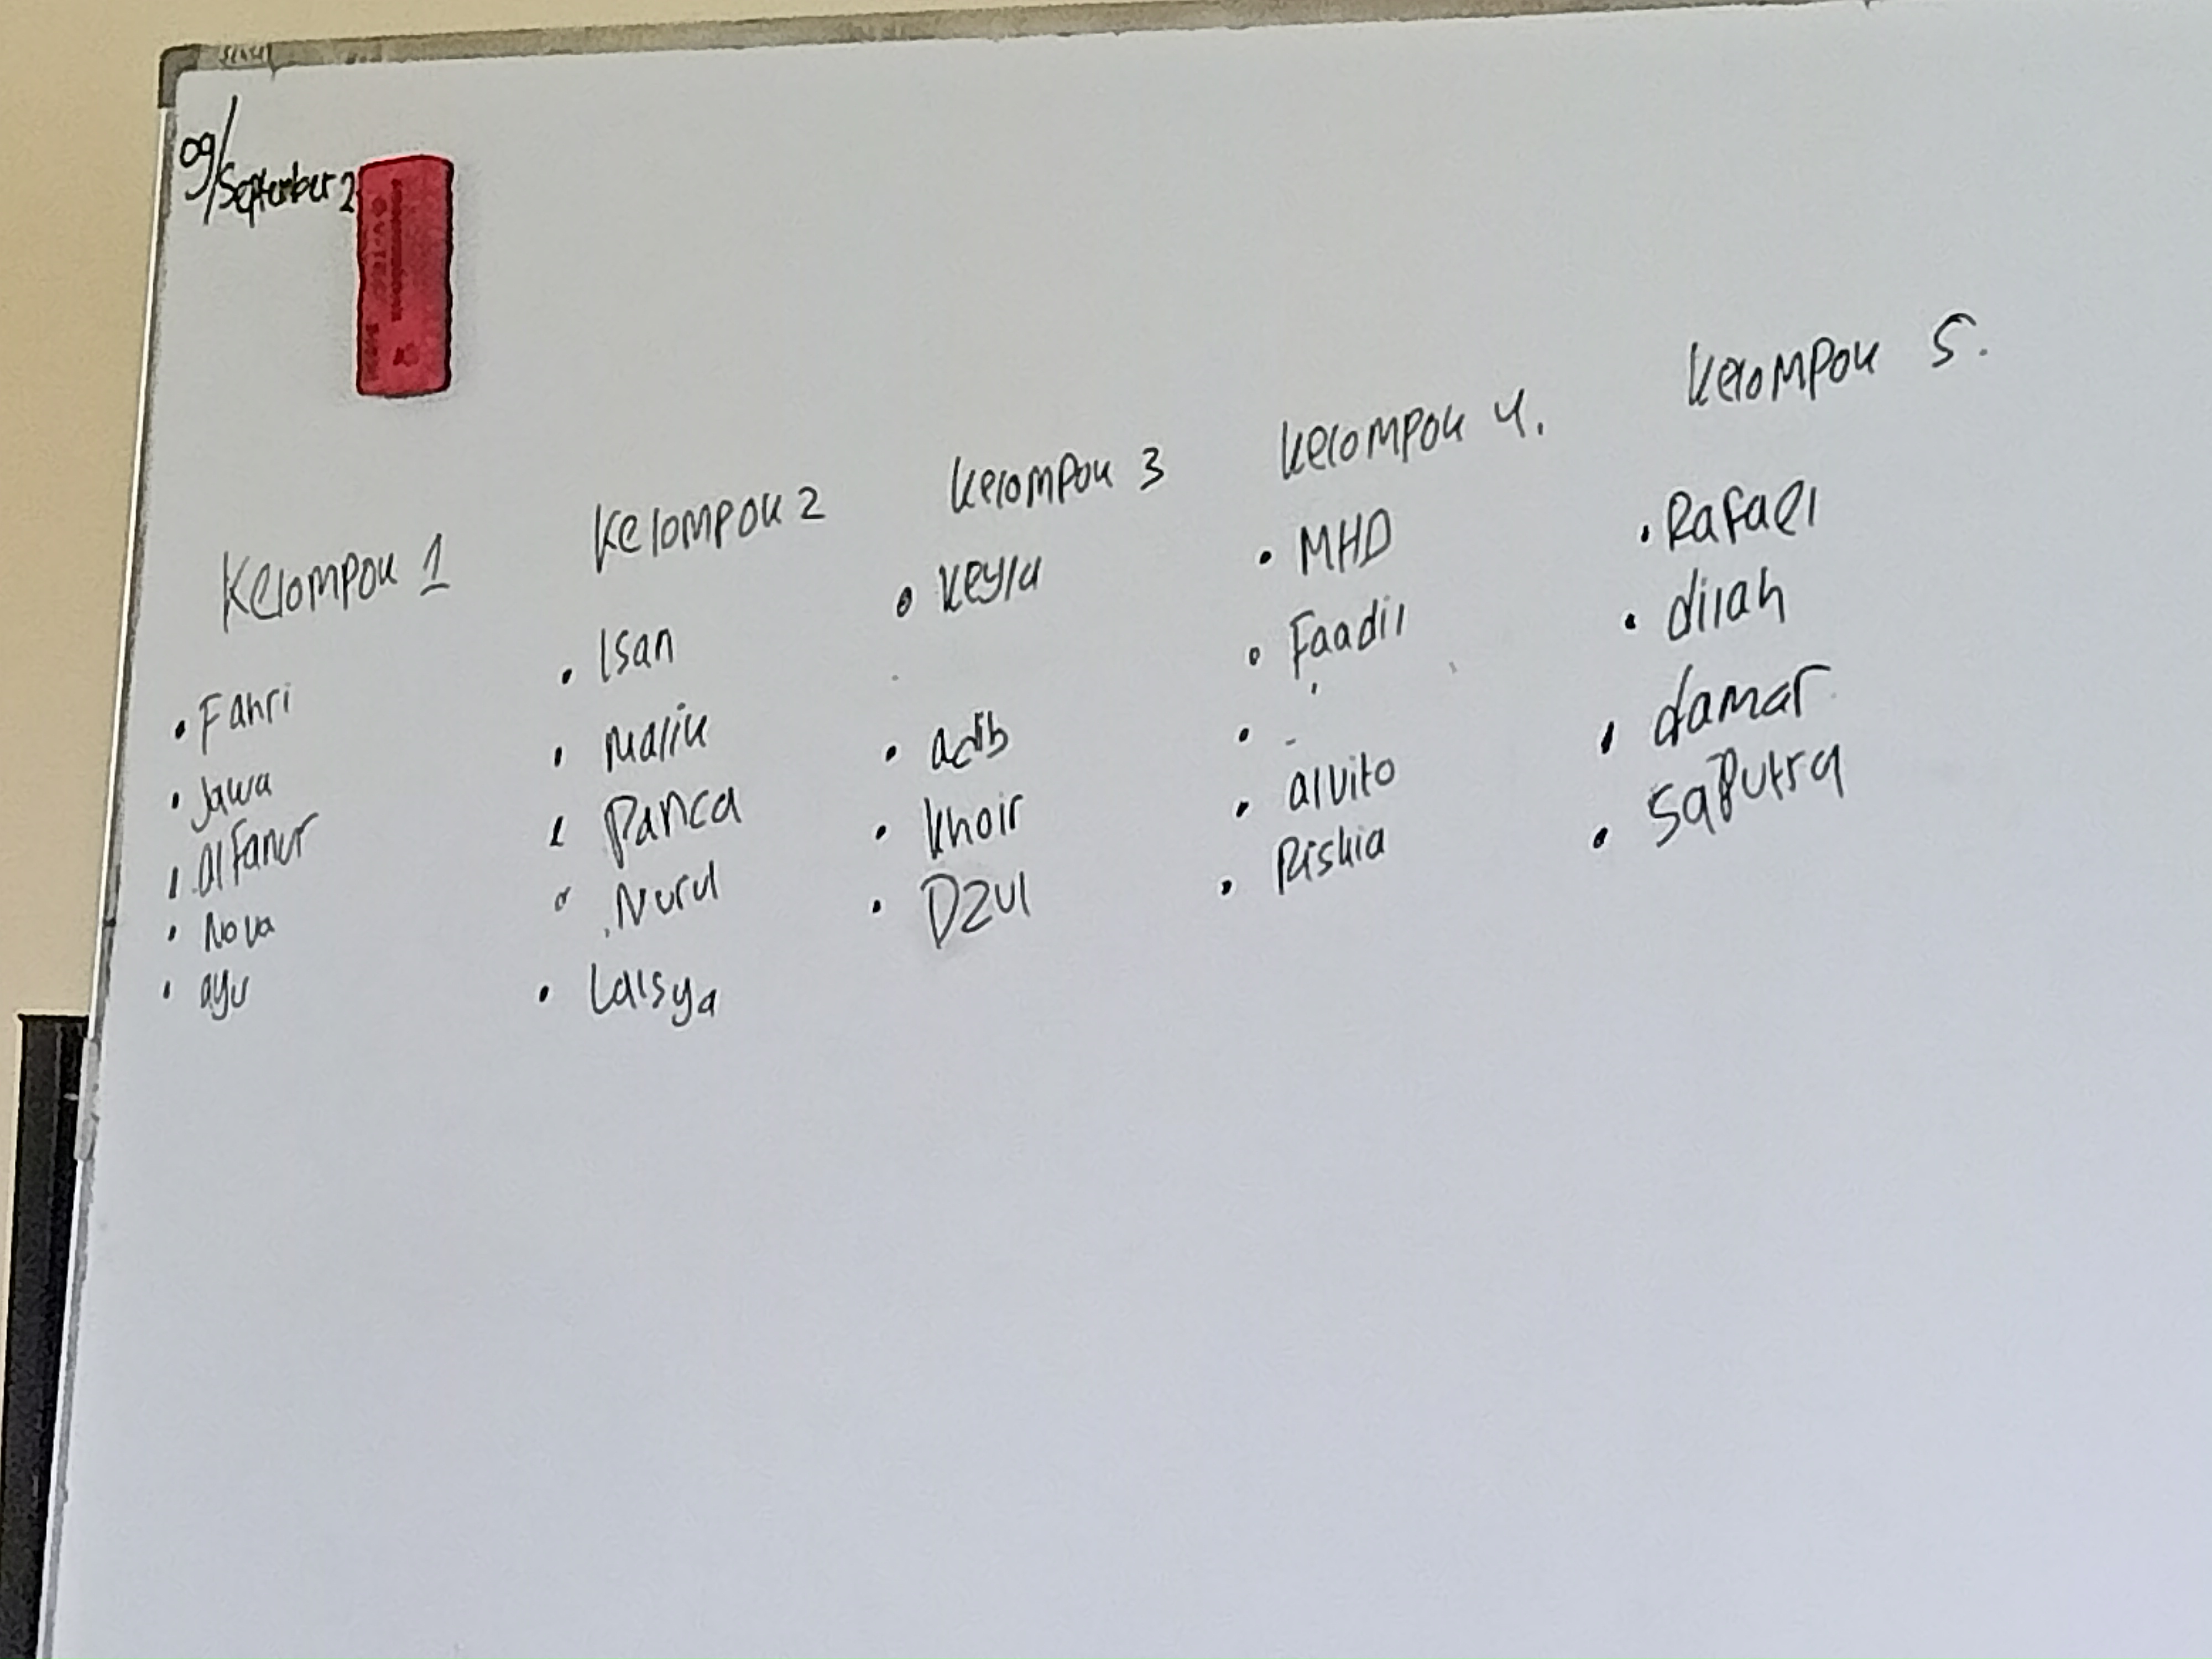 09/September 2
Kelompok 1
• Fahri
• Jawa
• alfanur
• Nova
• ayu
Kelompok 2
• Isan
• Malik
• Panca
• Nurul
• Laisya
Kelompok 3
• Keyla
• adib
• Khoir
• Dzul
Kelompok 4.
• MHD
• Faadil
• -
• alvito
• Riskia
Kelompok 5.
• Rafael
• dilah
• damar
• Saputra